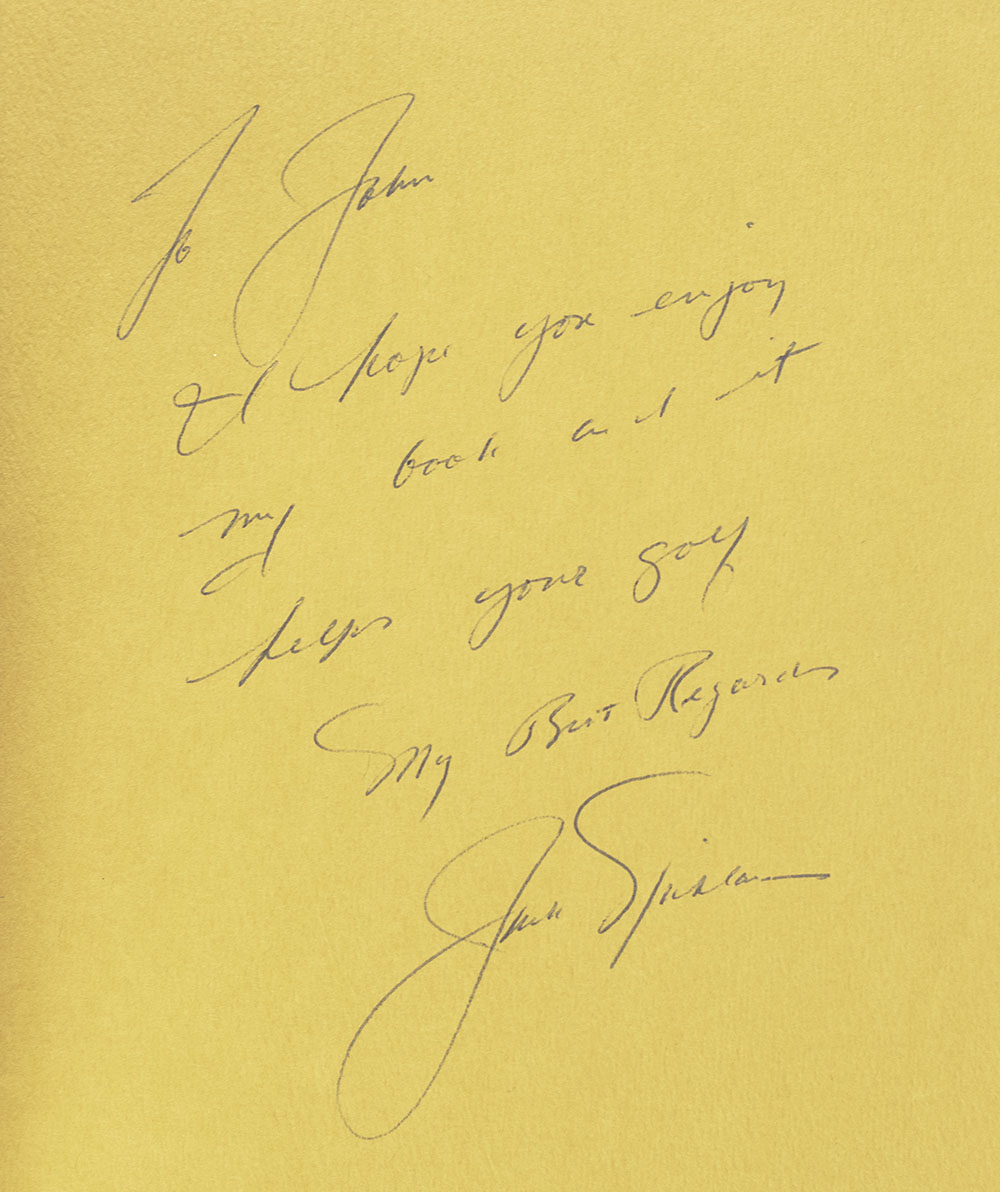 To John
I hope you enjoy
my book and it
helps your golf
My Best Regards
Jack Nicklaus